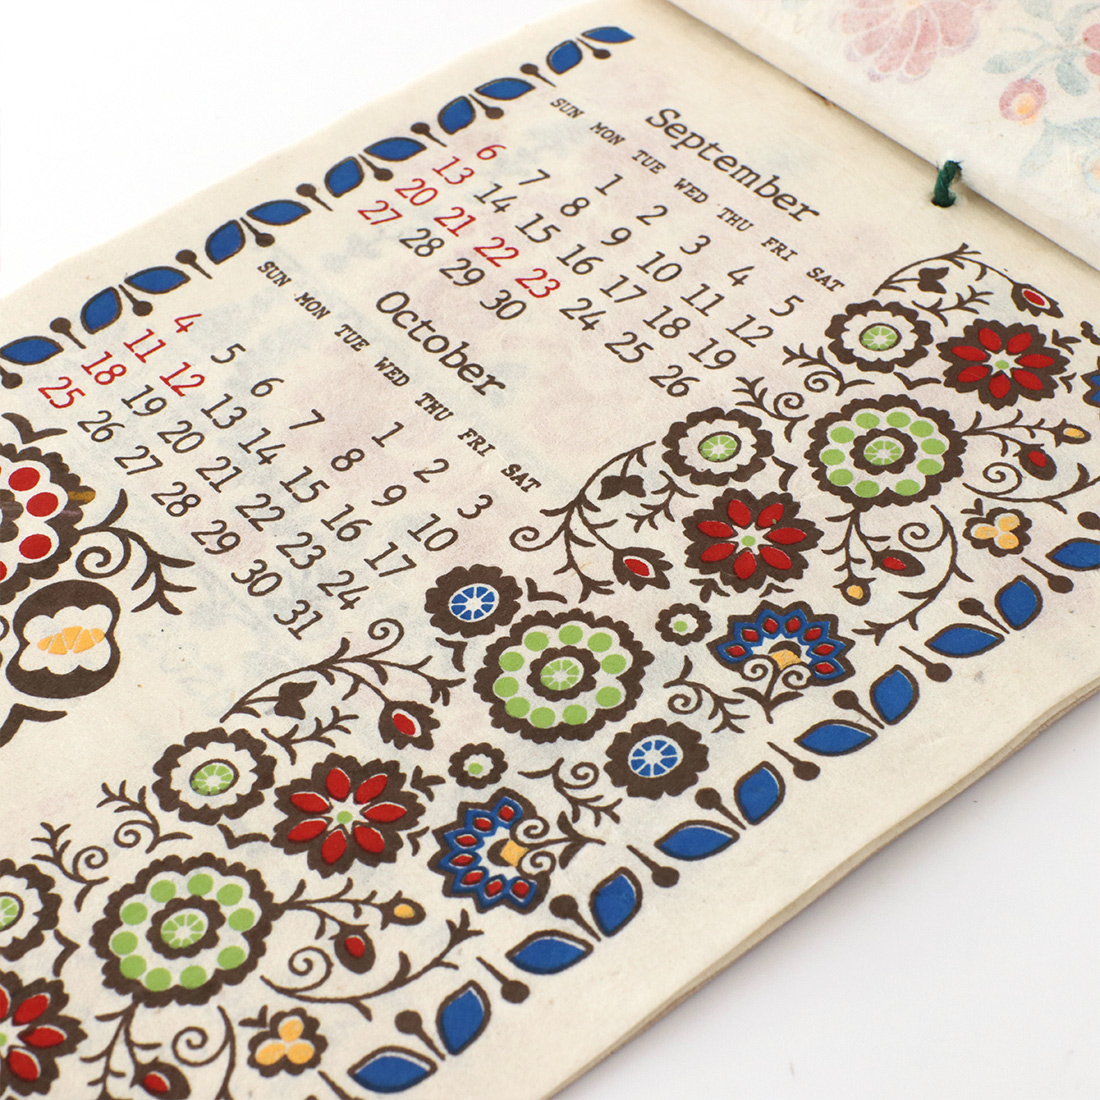 September
SUN MON TUE WED THU FRI SAT
1 2 3 4 5
6 7 8 9 10 11 12
13 14 15 16 17 18 19
20 21 22 23 24 25 26
27 28 29 30
October
SUN MON TUE WED THU FRI SAT
1 2 3
4 5 6 7 8 9 10
11 12 13 14 15 16 17
18 19 20 21 22 23 24
25 26 27 28 29 30 31